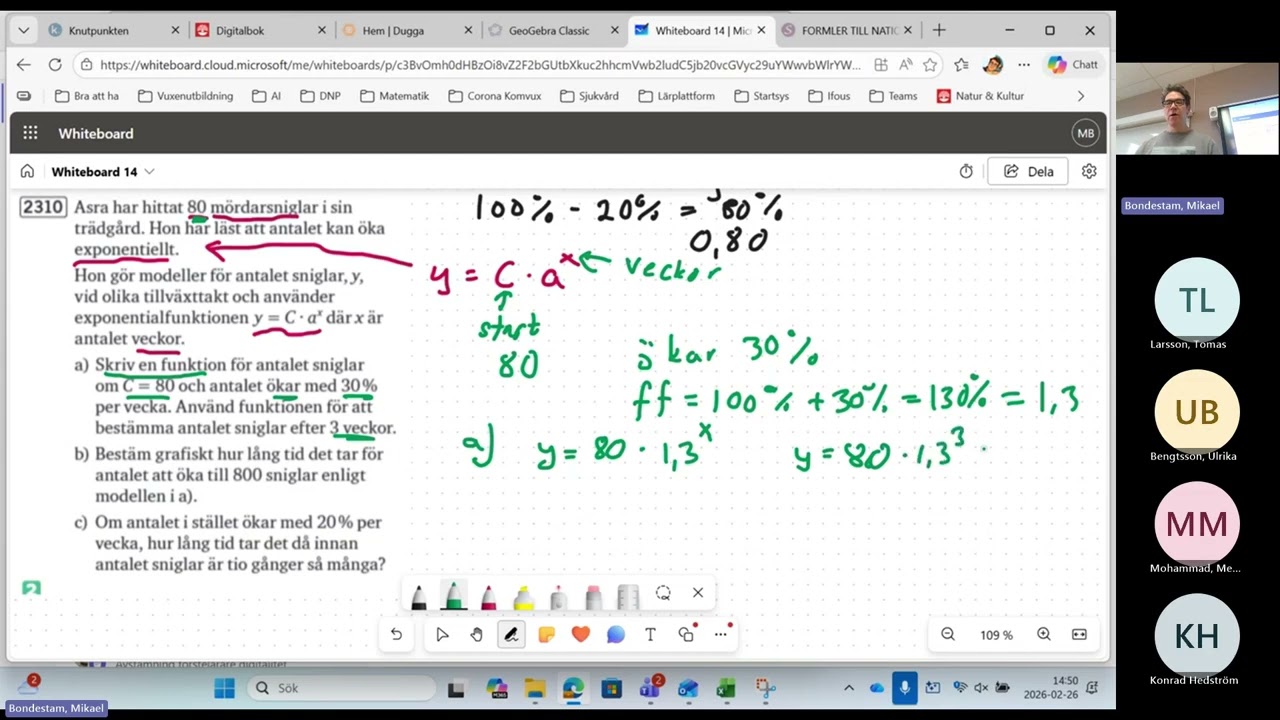 Knutpunkten
Digitalbok
Hem | Dugga
GeoGebra Classic
Whiteboard 14 | Micr
FORMLER TILL NATIO
https://whiteboard.cloud.microsoft/me/whiteboards/p/c3BvOmh0dHBzOi8vZ2F2bGUtbXkuc2hhcmVwb2ludC5jb20vcGVyc29uYWwvbWlrYW...
Chatt
Bra att ha
Vuxenutbildning
AI
DNP
Matematik
Corona Komvux
Sjukvård
Lärplattform
Startsys
Ifous
Teams
Natur & Kultur
Whiteboard
MB
Whiteboard 14
Dela
2310 Asra har hittat 80 mördarsniglar i sin
trädgård. Hon har läst att antalet kan öka
exponentiellt.
Hon gör modeller för antalet sniglar, y,
vid olika tillväxttakt och använder
exponentialfunktionen y = C · aˣ där x är
antalet veckor.
a) Skriv en funktion för antalet sniglar
om C = 80 och antalet ökar med 30 %
per vecka. Använd funktionen för att
bestämma antalet sniglar efter 3 veckor.
b) Bestäm grafiskt hur lång tid det tar för
antalet att öka till 800 sniglar enligt
modellen i a).
c) Om antalet i stället ökar med 20 % per
vecka, hur lång tid tar det då innan
antalet sniglar är tio gånger så många?
100% - 20% = 80%
0,80
y = C · aˣ ← veckor
start
80
ökar 30%
ff = 100% + 30% = 130% = 1,3
a) y = 80 · 1,3ˣ y = 80 · 1,3³
109 %
2
Sök
2
14:50
2026-02-26
Bondestam, Mikael
Bondestam, Mikael
TL
Larsson, Tomas
UB
Bengtsson, Ulrika
MM
Mohammad, Me...
KH
Konrad Hedström